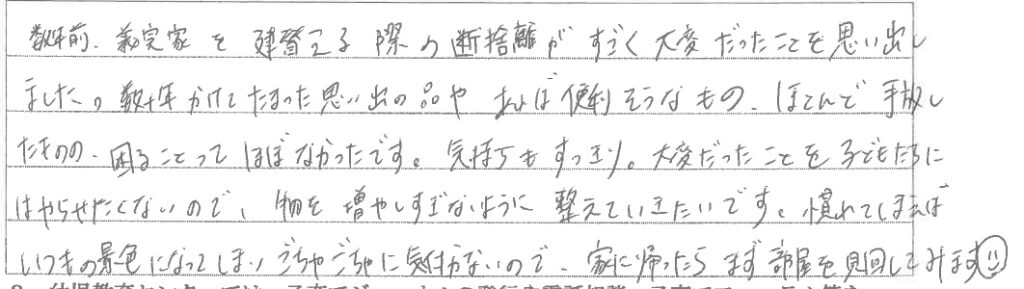 数年前、義実家を建替える際の断捨離がすごく大変だったことを思い出し
ました。数十年かけてたまった思い出の品や あれば便利そうなもの、ほとんど手放し
たものの、困ることってほぼなかったです。気持ちもすっきり。大変だったことを子どもたちに
はやらせたくないので、物を増やしすぎないように整えていきたいです。慣れてしまえば
いつもの景色になってしまい ごちゃごちゃに気付かないので、家に帰ったらまず部屋を見回してみます